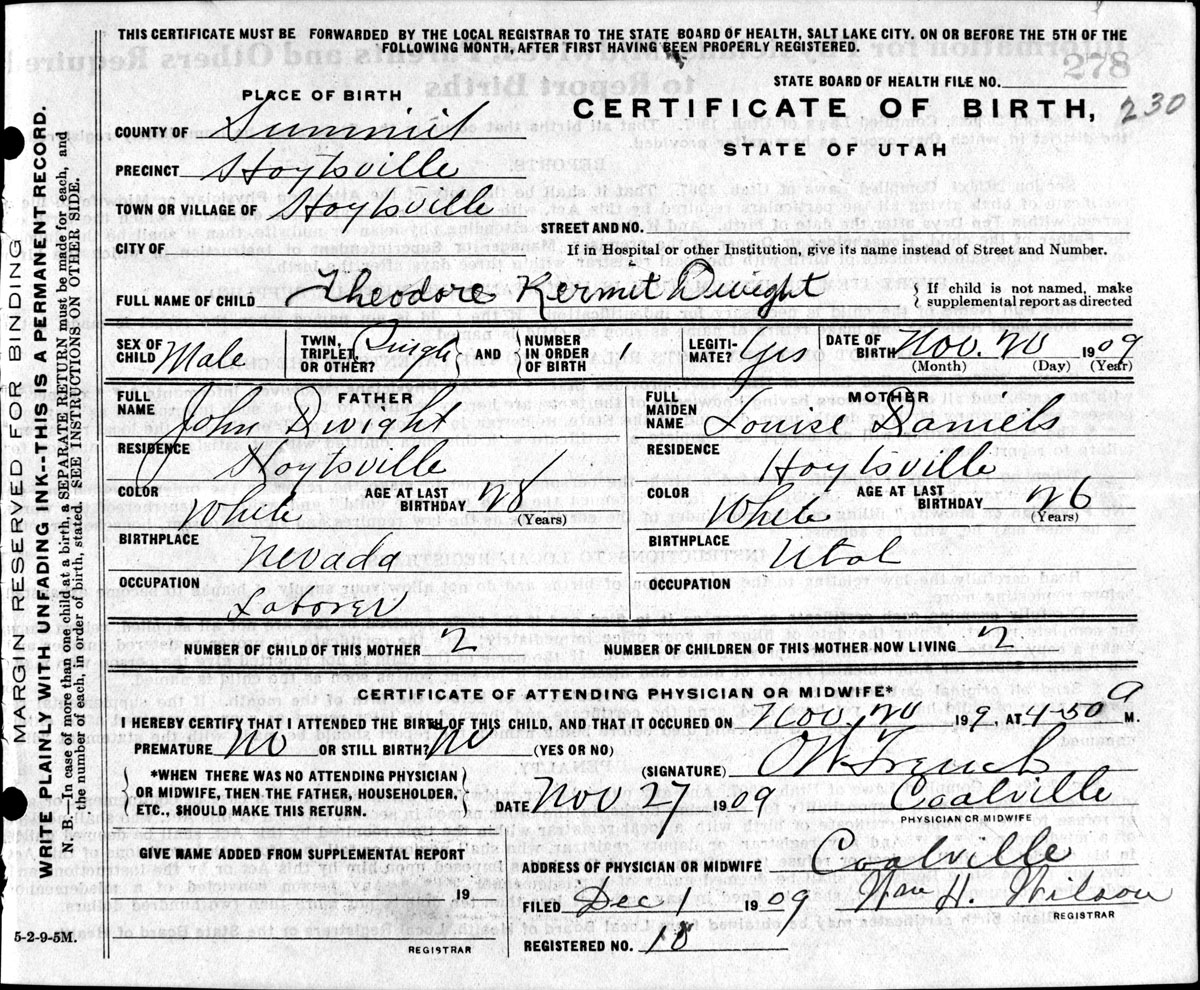 THIS CERTIFICATE MUST BE FORWARDED BY THE LOCAL REGISTRAR TO THE STATE BOARD OF HEALTH, SALT LAKE CITY. ON OR BEFORE THE 5TH OF THE
FOLLOWING MONTH, AFTER FIRST HAVING BEEN PROPERLY REGISTERED.
278
STATE BOARD OF HEALTH FILE NO.
PLACE OF BIRTH
CERTIFICATE OF BIRTH, 230
STATE OF UTAH
COUNTY OF Summit
PRECINCT Hoytsville
TOWN OR VILLAGE OF Hoytsville
STREET AND NO.
CITY OF
If in Hospital or other Institution, give its name instead of Street and Number.
FULL NAME OF CHILD Theodore Kermit Dwight
{ If child is not named, make
supplemental report as directed
SEX OF CHILD Male
TWIN, TRIPLET, OR OTHER? Single } AND { NUMBER IN ORDER OF BIRTH 1
LEGITI- MATE? Yes
DATE OF BIRTH Nov. 20 1909
(Month) (Day) (Year)
FATHER
FULL NAME John Dwight
RESIDENCE Hoytsville
COLOR White AGE AT LAST BIRTHDAY 28
(Years)
BIRTHPLACE Nevada
OCCUPATION
Laborer
MOTHER
FULL MAIDEN NAME Louise Daniels
RESIDENCE
Hoytsville
COLOR White AGE AT LAST BIRTHDAY 26
(Years)
BIRTHPLACE Utah
OCCUPATION
NUMBER OF CHILD OF THIS MOTHER 2 NUMBER OF CHILDREN OF THIS MOTHER NOW LIVING 2
CERTIFICATE OF ATTENDING PHYSICIAN OR MIDWIFE*
I HEREBY CERTIFY THAT I ATTENDED THE BIRTH OF THIS CHILD, AND THAT IT OCCURED ON Nov. 20 199, AT 4-50 a M.
PREMATURE No OR STILL BIRTH? No (YES OR NO)
(SIGNATURE) O W French
{ *WHEN THERE WAS NO ATTENDING PHYSICIAN
OR MIDWIFE, THEN THE FATHER, HOUSEHOLDER,
ETC., SHOULD MAKE THIS RETURN. }
DATE Nov 27 1909 Coalville
PHYSICIAN OR MIDWIFE
GIVE NAME ADDED FROM SUPPLEMENTAL REPORT
19
REGISTRAR
ADDRESS OF PHYSICIAN OR MIDWIFE Coalville
FILED Dec 1 1909 Wm H. Wilson
REGISTRAR
REGISTERED NO. 18
5-2-9-5M.
MARGIN RESERVED FOR BINDING
WRITE PLAINLY WITH UNFADING INK--THIS IS A PERMANENT RECORD.
N. B.—In case of more than one child at a birth, a SEPARATE RETURN must be made for each, and
the number of each, in order of birth, stated. SEE INSTRUCTIONS ON OTHER SIDE.